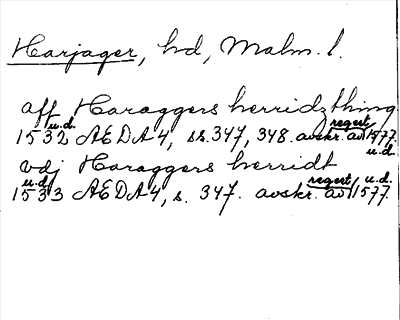 Harjager, hd, Malm. l.
aff Haraggers herridzthing
1532 u.d. AEDA4, ss. 347, 348. avskr. av regest 1577. u.d.
vdj Haraggers herridt
1533 u.d. AEDA4, s. 347. avskr. av regest 1577. u.d.